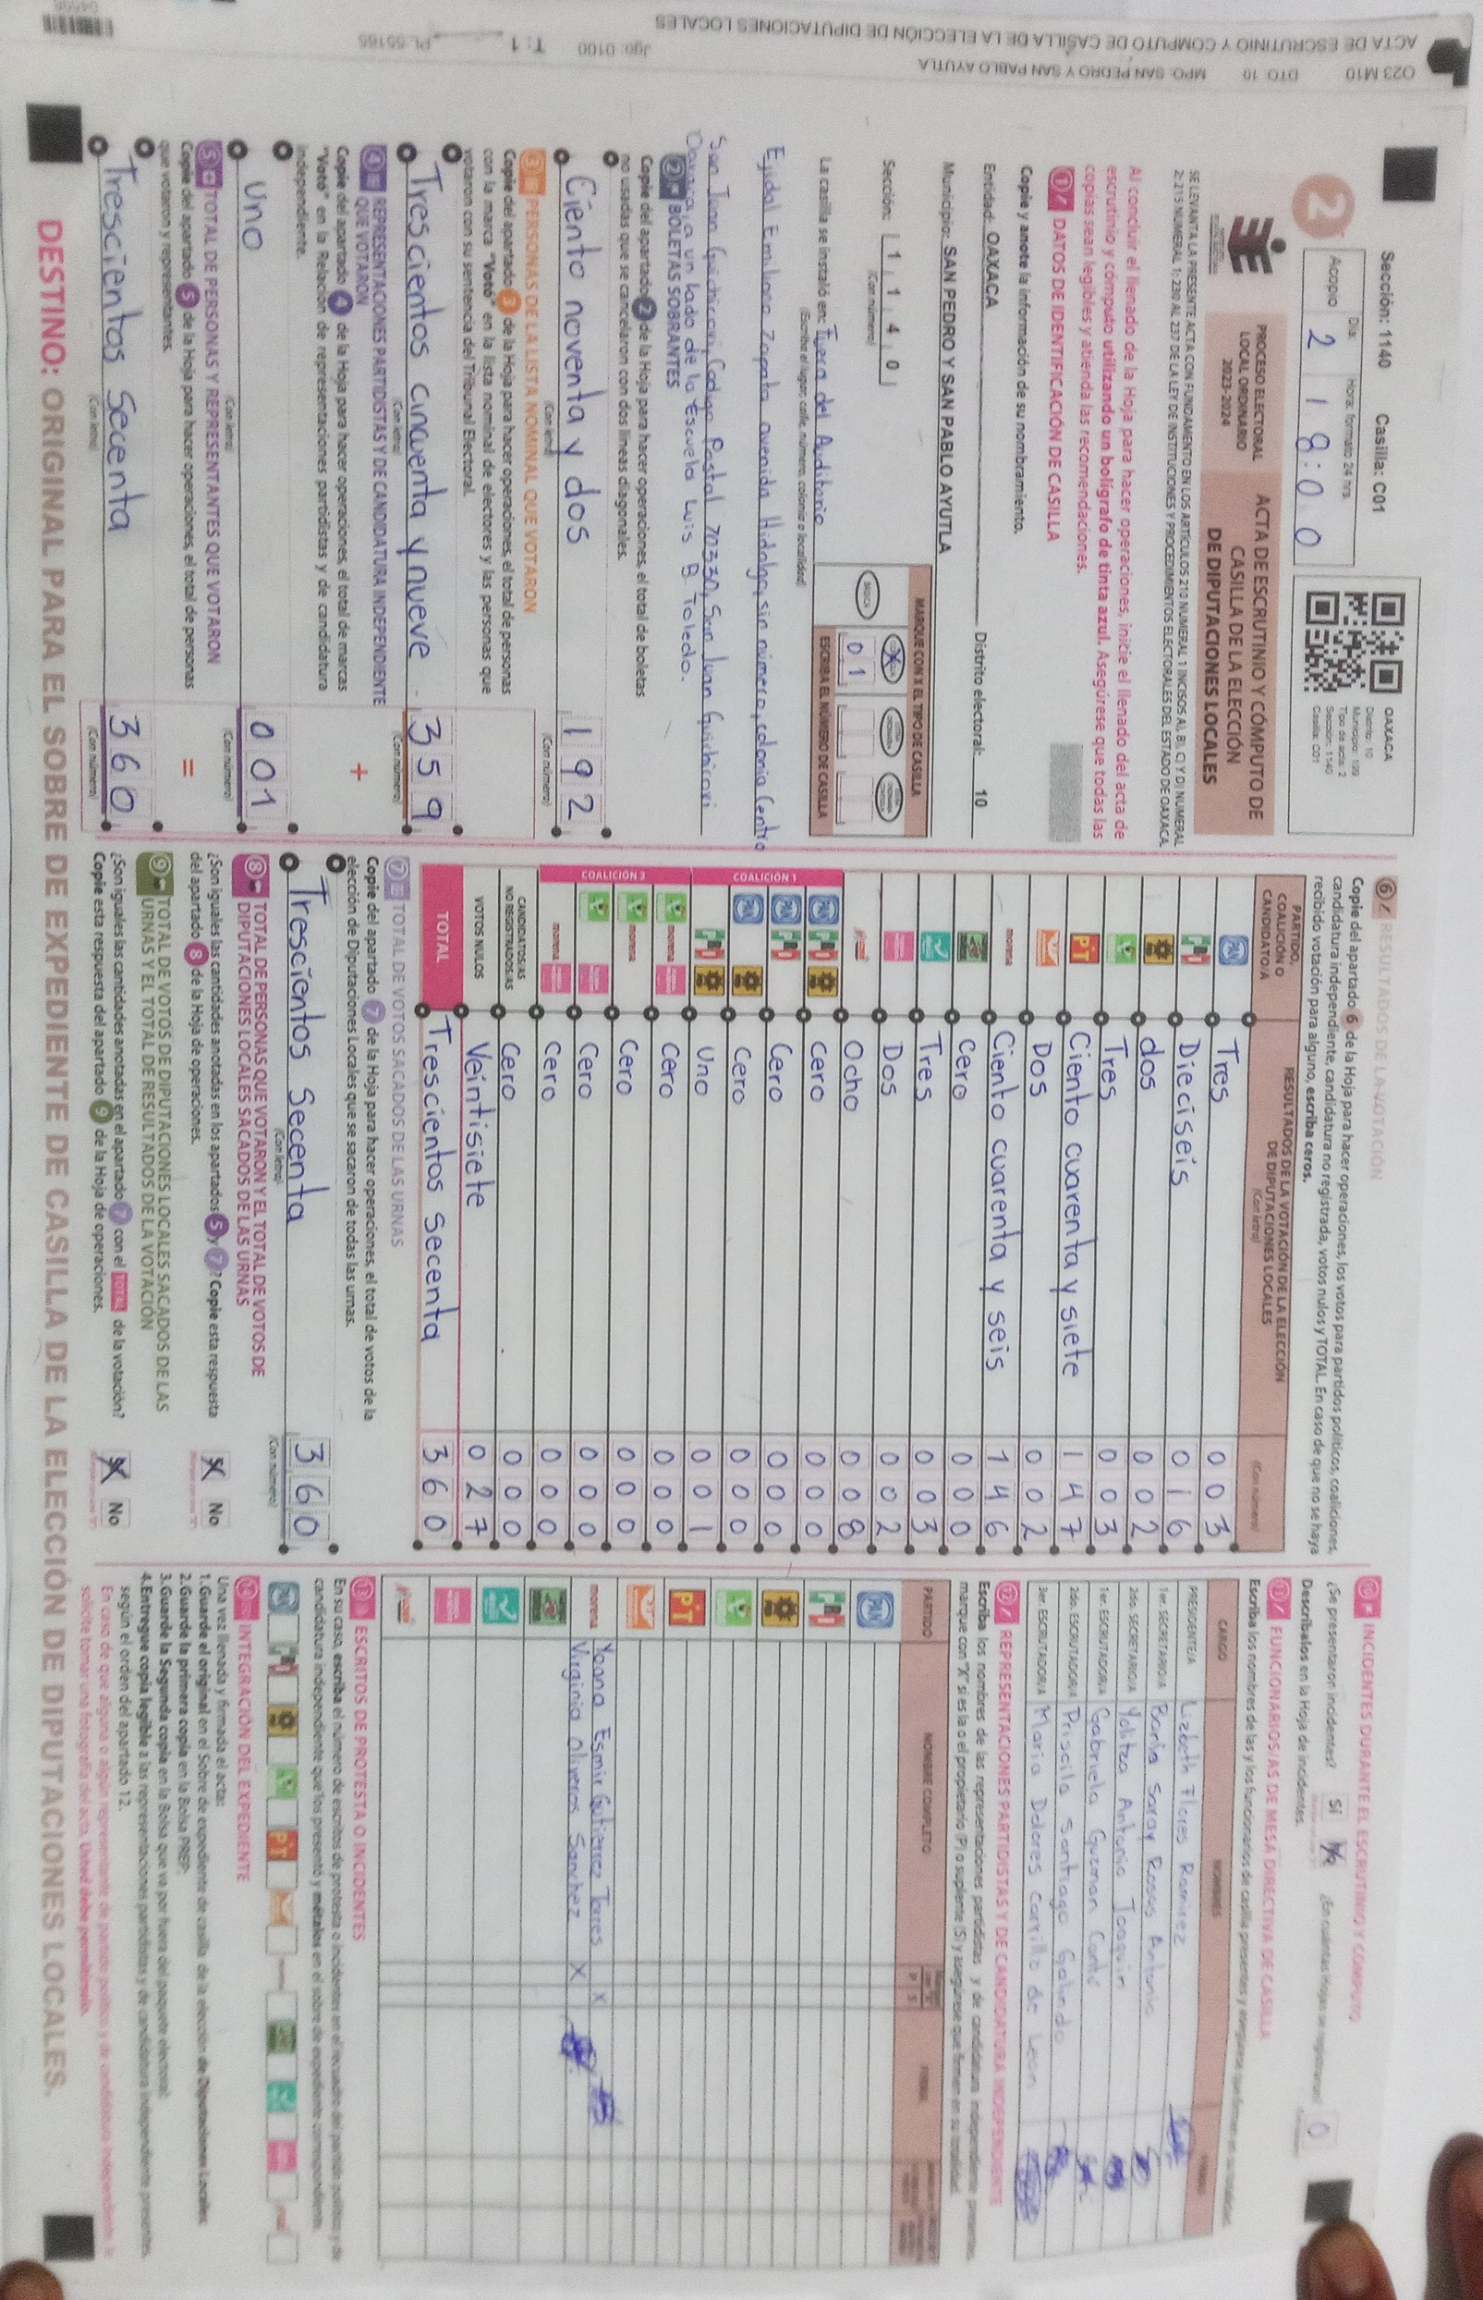 O23 M10 DTO 10 MPO SAN PEDRO Y SAN PABLO AYUTLA
ACTA DE ESCRUTINIO Y COMPUTO DE CASILLA DE LA ELECCIÓN DE DIPUTACIONES LOCALES
Jgo: 0100 T: 1 PL. 55165
Sección: 1140 Casilla: C01
Día: Hora: formato 24 hrs.
Acopio 2 18:00
2
OAXACA
Distrito: 10
Municipio: 199
Tipo de acta: 2
Sección: 1140
Casilla: C01
PROCESO ELECTORAL
LOCAL ORDINARIO
2023-2024
ACTA DE ESCRUTINIO Y CÓMPUTO DE
CASILLA DE LA ELECCIÓN
DE DIPUTACIONES LOCALES
SE LEVANTA LA PRESENTE ACTA CON FUNDAMENTO EN LOS ARTÍCULOS 210 NUMERAL 1 INCISOS A), B), C) Y D) NUMERAL
2; 215 NUMERAL 1; 230 AL 237 DE LA LEY DE INSTITUCIONES Y PROCEDIMIENTOS ELECTORALES DEL ESTADO DE OAXACA.
Al concluir el llenado de la Hoja para hacer operaciones, inicie el llenado del acta de
escrutinio y cómputo utilizando un bolígrafo de tinta azul. Asegúrese que todas las
copias sean legibles y atienda las recomendaciones.
1 DATOS DE IDENTIFICACIÓN DE CASILLA
Copie y anote la información de su nombramiento.
Entidad: OAXACA Distrito electoral: 10
Municipio: SAN PEDRO Y SAN PABLO AYUTLA
Sección: 1 1 4 0
(Con número)
MARQUE CON X EL TIPO DE CASILLA
BÁSICA X
0 1
ESCRIBA EL NÚMERO DE CASILLA
La casilla se instaló en: Fuera del Auditorio
(Escriba el lugar, calle, número, colonia o localidad)
Ejidal Emiliano Zapata avenida Hidalgo, sin número, colonia Centro
San Juan Guichicovi, Codigo Postal 70330, San Juan Guichicovi
Oaxaca, a un lado de la Escuela Luis B Toledo.
2 BOLETAS SOBRANTES
Copie del apartado 2 de la Hoja para hacer operaciones, el total de boletas
no usadas que se cancelaron con dos líneas diagonales.
Ciento noventa y dos 192
(Con letra) (Con número)
3 PERSONAS DE LA LISTA NOMINAL QUE VOTARON
Copie del apartado 3 de la Hoja para hacer operaciones, el total de personas
con la marca "Votó" en la lista nominal de electores y las personas que
votaron con su sentencia del Tribunal Electoral.
Trescientos cincuenta y nueve 359
(Con letra) (Con número)
4 REPRESENTACIONES PARTIDISTAS Y DE CANDIDATURA INDEPENDIENTE
QUE VOTARON
Copie del apartado 4 de la Hoja para hacer operaciones, el total de marcas
"Votó" en la Relación de representaciones partidistas y de candidatura
independiente.
+
Uno 001
(Con letra) (Con número)
5 TOTAL DE PERSONAS Y REPRESENTANTES QUE VOTARON
Copie del apartado 5 de la Hoja para hacer operaciones, el total de personas
que votaron y representantes.
=
Trescientos Secenta 360
(Con letra) (Con número)
6 RESULTADOS DE LA VOTACIÓN
Copie del apartado 6 de la Hoja para hacer operaciones, los votos para partidos políticos, coaliciones,
candidatura independiente, candidatura no registrada, votos nulos y TOTAL. En caso de que no se haya
recibido votación para alguno, escriba ceros.
PARTIDO,
COALICIÓN O
CANDIDATO/A
RESULTADOS DE LA VOTACIÓN DE LA ELECCIÓN
DE DIPUTACIONES LOCALES
(Con letra) (Con número)
PAN Tres 003
PRI Dieciseis 016
PRD dos 002
Tres 003
PT Ciento cuarenta y siete 147
Dos 002
morena Ciento cuarenta y seis 146
Cero 000
Tres 003
Dos 002
Ocho 008
COALICIÓN 1
PAN PRI PRD cero 000
PAN PRI Cero 000
PAN PRD Cero 000
PRI PRD Uno 001
COALICIÓN 2
morena Cero 000
morena Cero 000
Cero 000
morena Cero 000
CANDIDATOS/AS
NO REGISTRADOS/AS Cero 000
VOTOS NULOS Veintisiete 027
TOTAL Trescientos Secenta 360
7 TOTAL DE VOTOS SACADOS DE LAS URNAS
Copie del apartado 7 de la Hoja para hacer operaciones, el total de votos de la
elección de Diputaciones Locales que se sacaron de todas las urnas.
Trescientos Secenta 360
(Con letra) (Con número)
8 TOTAL DE PERSONAS QUE VOTARON Y EL TOTAL DE VOTOS DE
DIPUTACIONES LOCALES SACADOS DE LAS URNAS
¿Son iguales las cantidades anotadas en los apartados 5 y 7? Copie esta respuesta
del apartado 8 de la Hoja de operaciones.
X No
9 TOTAL DE VOTOS DE DIPUTACIONES LOCALES SACADOS DE LAS
URNAS Y EL TOTAL DE RESULTADOS DE LA VOTACIÓN
¿Son iguales las cantidades anotadas en el apartado 7 con el TOTAL de la votación?
Copie esta respuesta del apartado 9 de la Hoja de operaciones.
X No
10 INCIDENTES DURANTE EL ESCRUTINIO Y CÓMPUTO
¿Se presentaron incidentes? Sí No 0
Descríbalos en la Hoja de incidentes.
11 FUNCIONARIOS/AS DE MESA DIRECTIVA DE CASILLA
Escriba los nombres de las y los funcionarios de casilla presentes y asegúrese que firmen en su totalidad.
CARGO NOMBRES
PRESIDENTE/A Lizbeth Flores Ramirez
1er. SECRETARIO/A Saray Antonio
2do. SECRETARIO/A Yolitza Antonio Joaquin
1er. ESCRUTADOR/A Gabriela Guzman
2do. ESCRUTADOR/A Priscila Santiago Galindo
3er. ESCRUTADOR/A Maria Dolores Carrillo de Leon
12 REPRESENTACIONES PARTIDISTAS Y DE CANDIDATURA INDEPENDIENTE
Escriba los nombres de las representaciones partidistas y de candidatura independiente presentes,
marque con "X" si es la o el propietario (P) o suplente (S) y asegúrese que firmen en su totalidad.
PARTIDO NOMBRE COMPLETO
PAN
PRI
PRD
PT
morena Yoana Esmir Gutierrez Torres X
Virginia Oliveros Sanchez X
13 ESCRITOS DE PROTESTA O INCIDENTES
En su caso, escriba el número de escritos de protesta o incidentes en el recuadro del partido político y de
candidatura independiente que los presentó y métalos en el sobre de expediente correspondiente.
INTEGRACIÓN DEL EXPEDIENTE
Una vez llenada y firmada el acta:
1. Guarde el original en el Sobre de expediente de casilla de la elección de Diputaciones Locales.
2. Guarde la primera copia en la Bolsa PREP.
3. Guarde la Segunda copia en la Bolsa que va por fuera del paquete electoral.
4. Entregue copia legible a las representaciones partidistas y de candidatura independiente presentes,
según el orden del apartado 12.
En caso de que alguna o algún representante de partido político y de candidatura independiente le
solicite tomar una fotografía del acta, Usted debe permitírselo.
DESTINO: ORIGINAL PARA EL SOBRE DE EXPEDIENTE DE CASILLA DE LA ELECCIÓN DE DIPUTACIONES LOCALES.